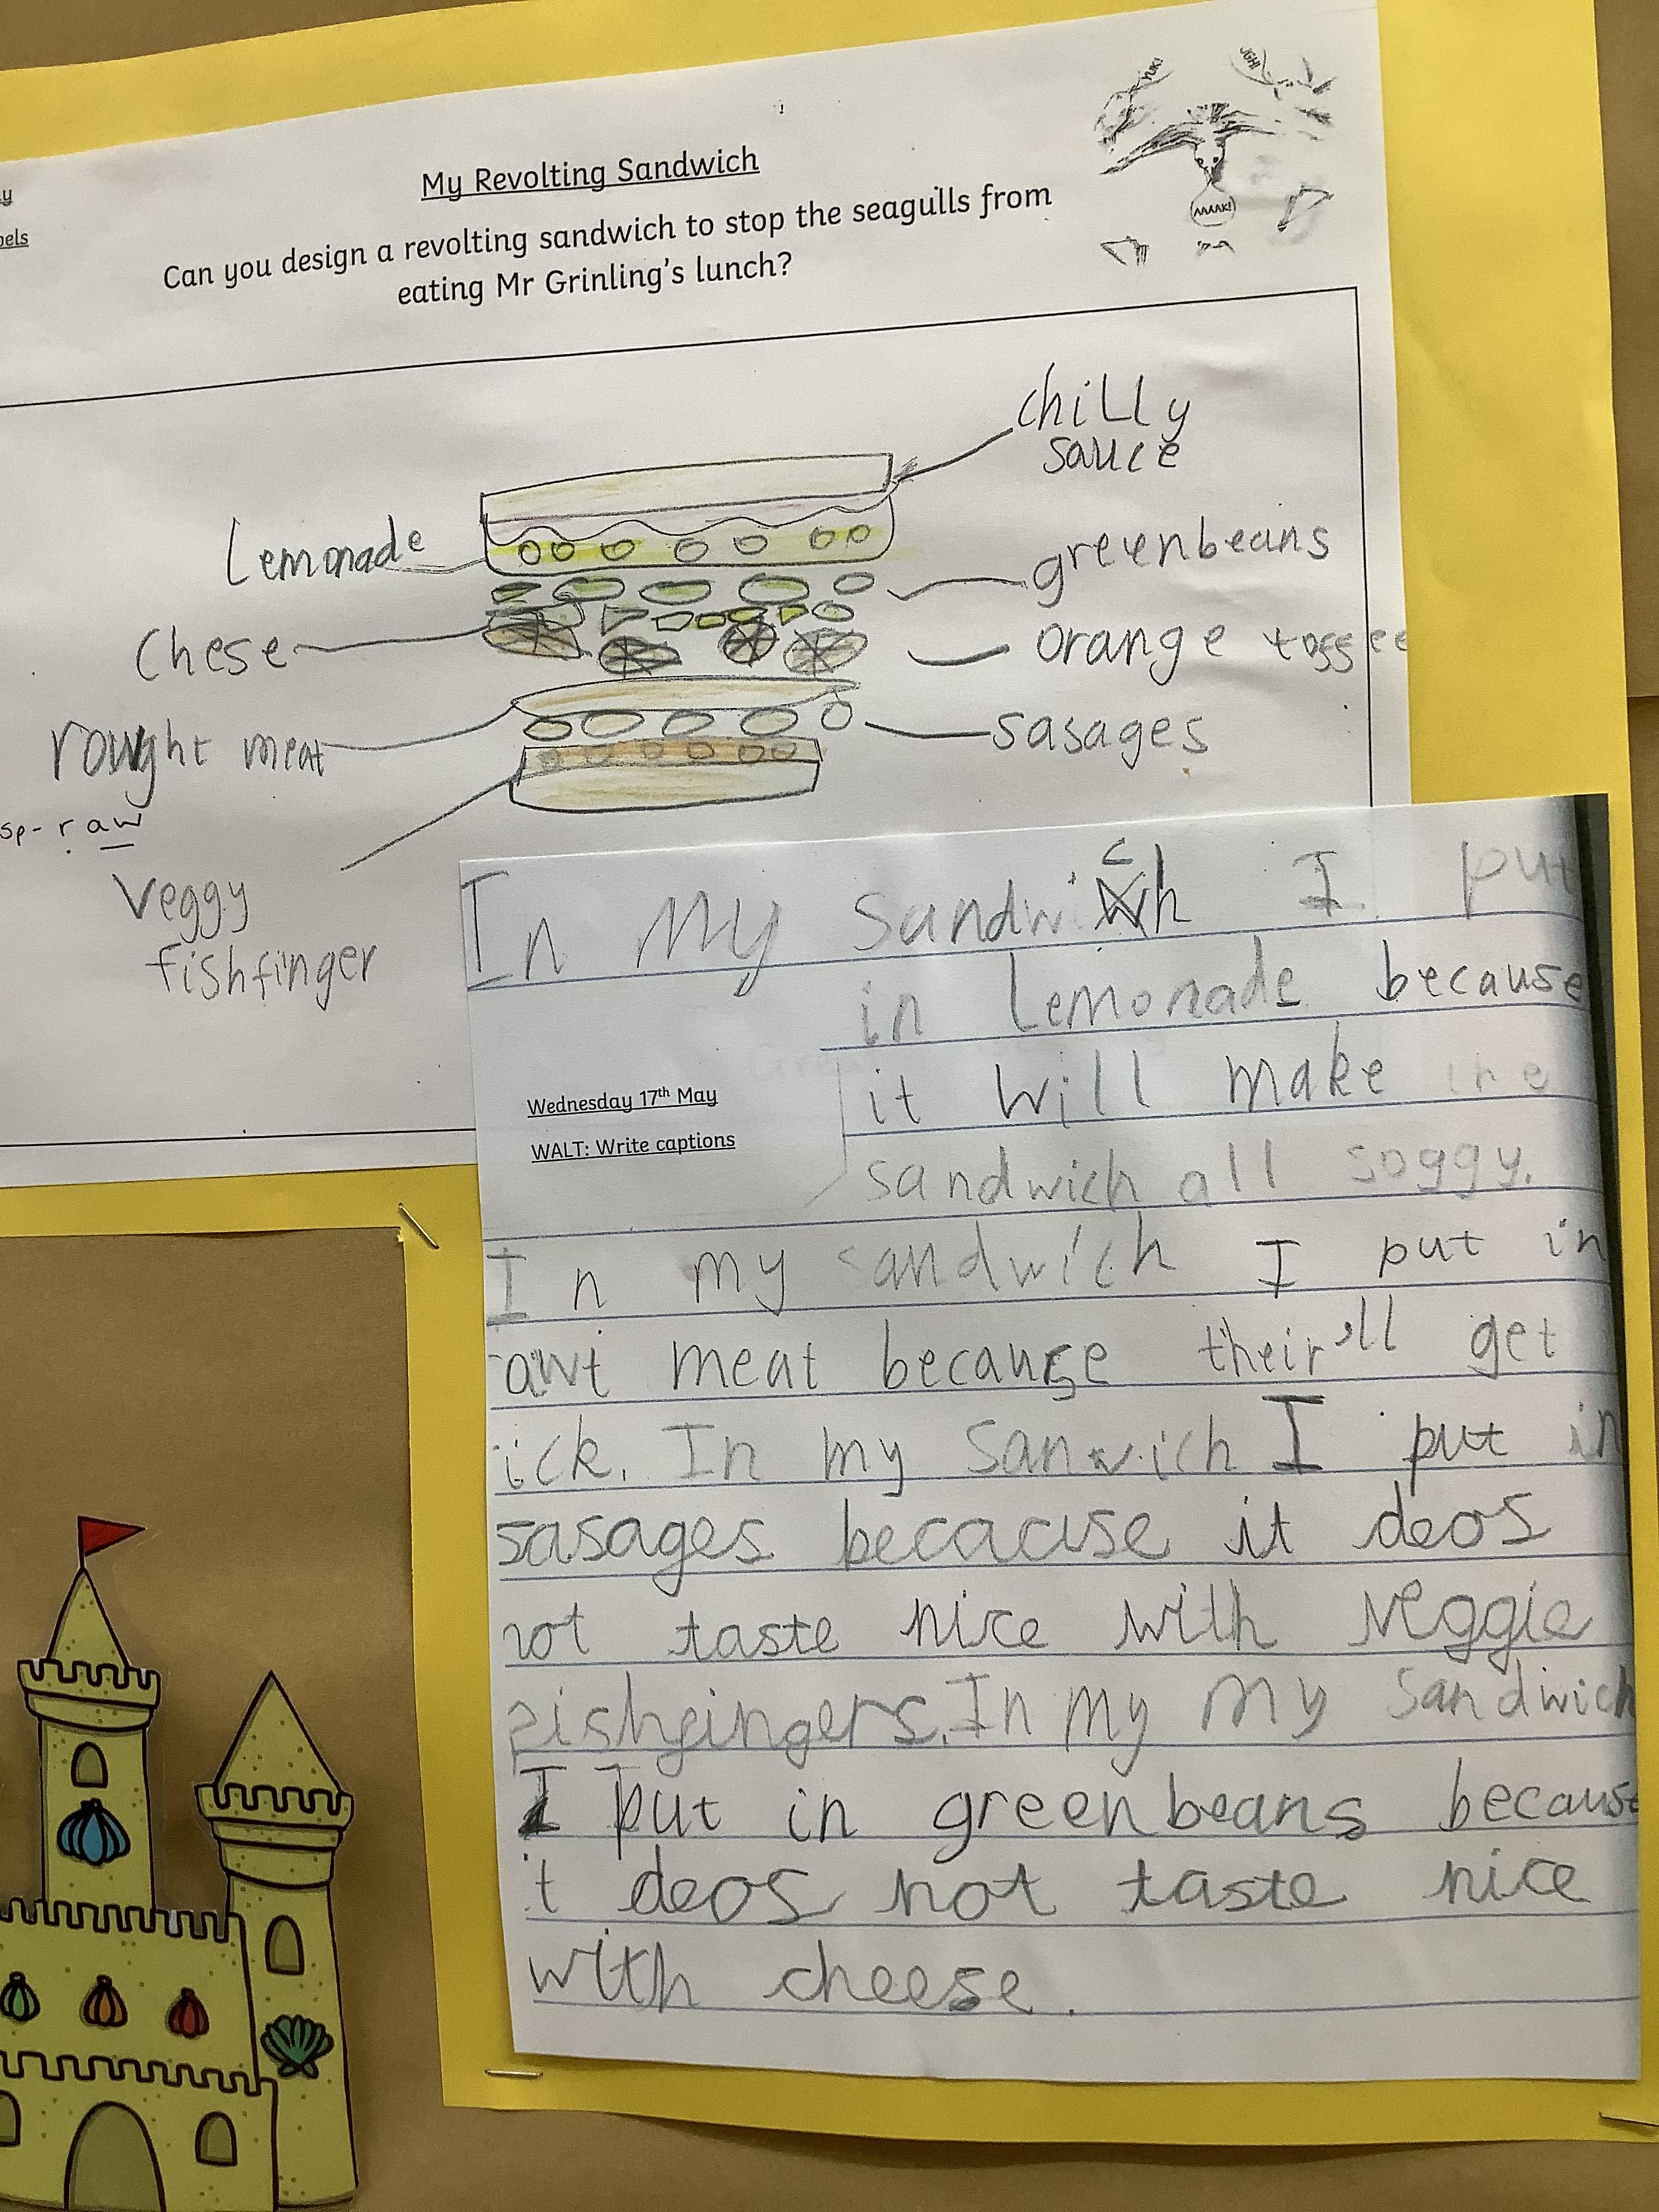 My Revolting Sandwich
Can you design a revolting sandwich to stop the seagulls from
eating Mr Grinling's lunch?
YUK!
UGH!
AAAAK!
y
bels
chilly
sauce
Lemonade
greenbeans
Chese
orange toffee
rought meat
sasages
sp- raw
Veggy
fishfinger
In My Sandwich I put
in Lemonade because
it will make the
Wednesday 17th May
WALT: Write captions
sandwich all soggy.
In my sandwich I put in
awt meat because their'll get
ick. In my Sanwich I put in
sasages because it deos
not taste nice with veggie
fishfingers. In my my Sandwich
I put in greenbeans because
it deos not taste nice
with cheese.